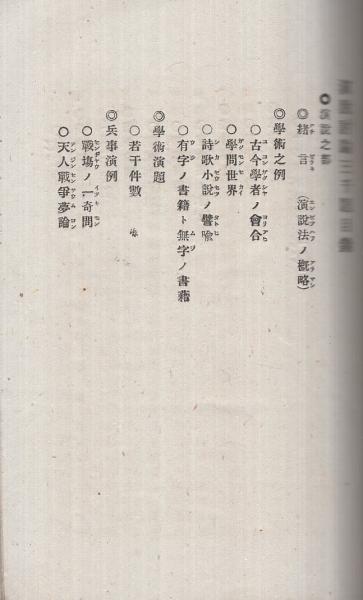 ◎演説之部
◎緒言（演説法ノ概略）
◎學術之例
○古今學者ノ會合
○學問世界
○詩歌小説ノ譬喩
○有字ノ書籍ト無字ノ書籍
◎學術演題
○若干件數
◎兵事演例
○戰塲ノ一奇問
○天人戰爭夢論